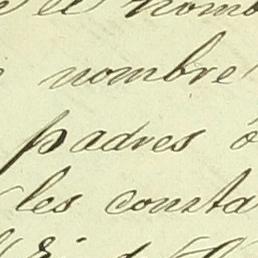 el nomb
nombre
padres ó
les consta